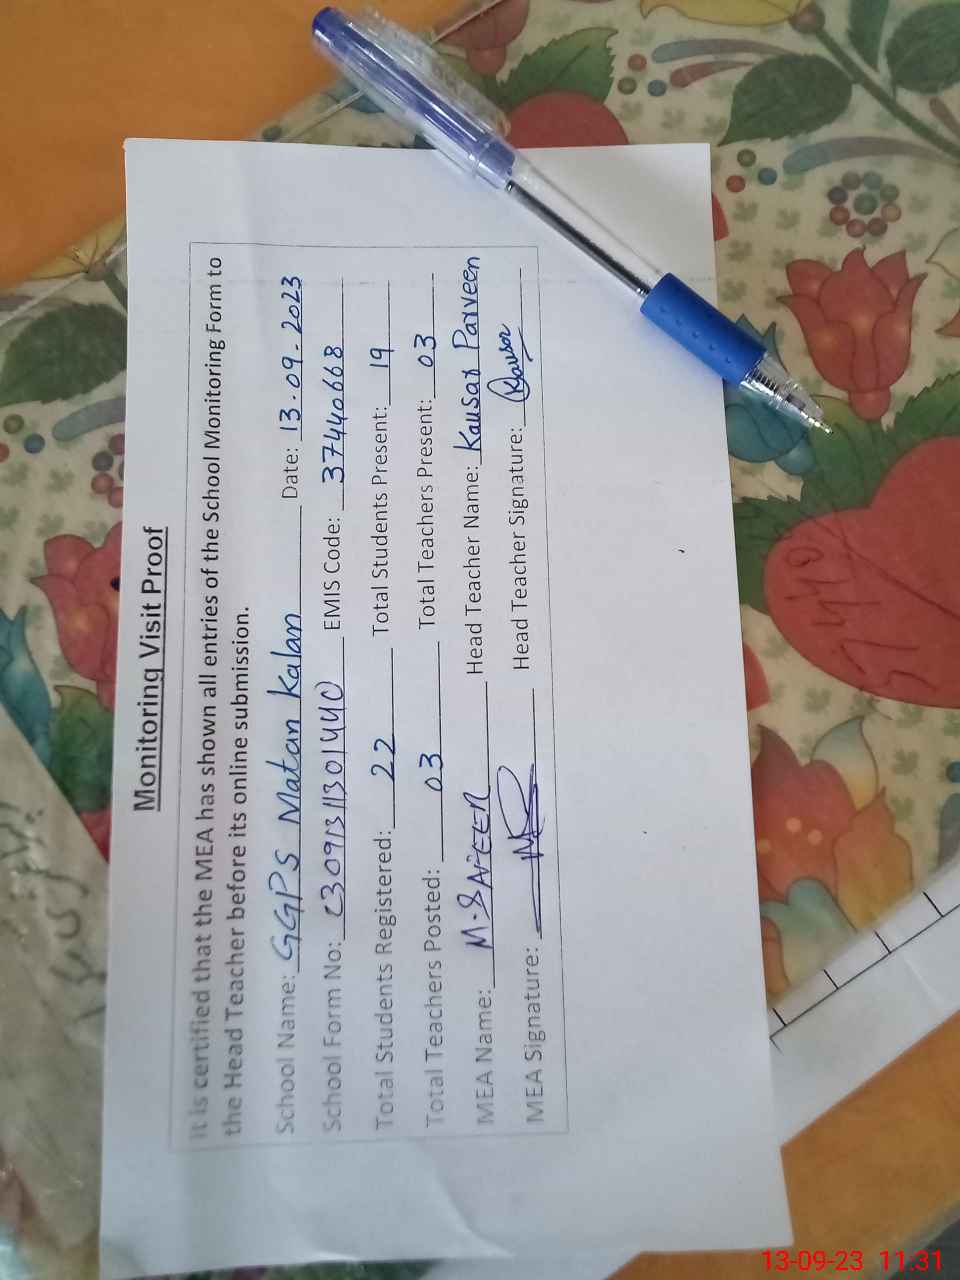 Monitoring Visit Proof
It is certified that the MEA has shown all entries of the School Monitoring Form to
the Head Teacher before its online submission.
School Name: GGPS Matan Kalan Date: 13-09-2023
School Form No: C309131301440 EMIS Code: 37440668
Total Students Registered: 22 Total Students Present: 19
Total Teachers Posted: 03 Total Teachers Present: 03
MEA Name: Head Teacher Name: Kausar Parveen
MEA Signature: Head Teacher Signature: Kausar
13-09-23 11:31